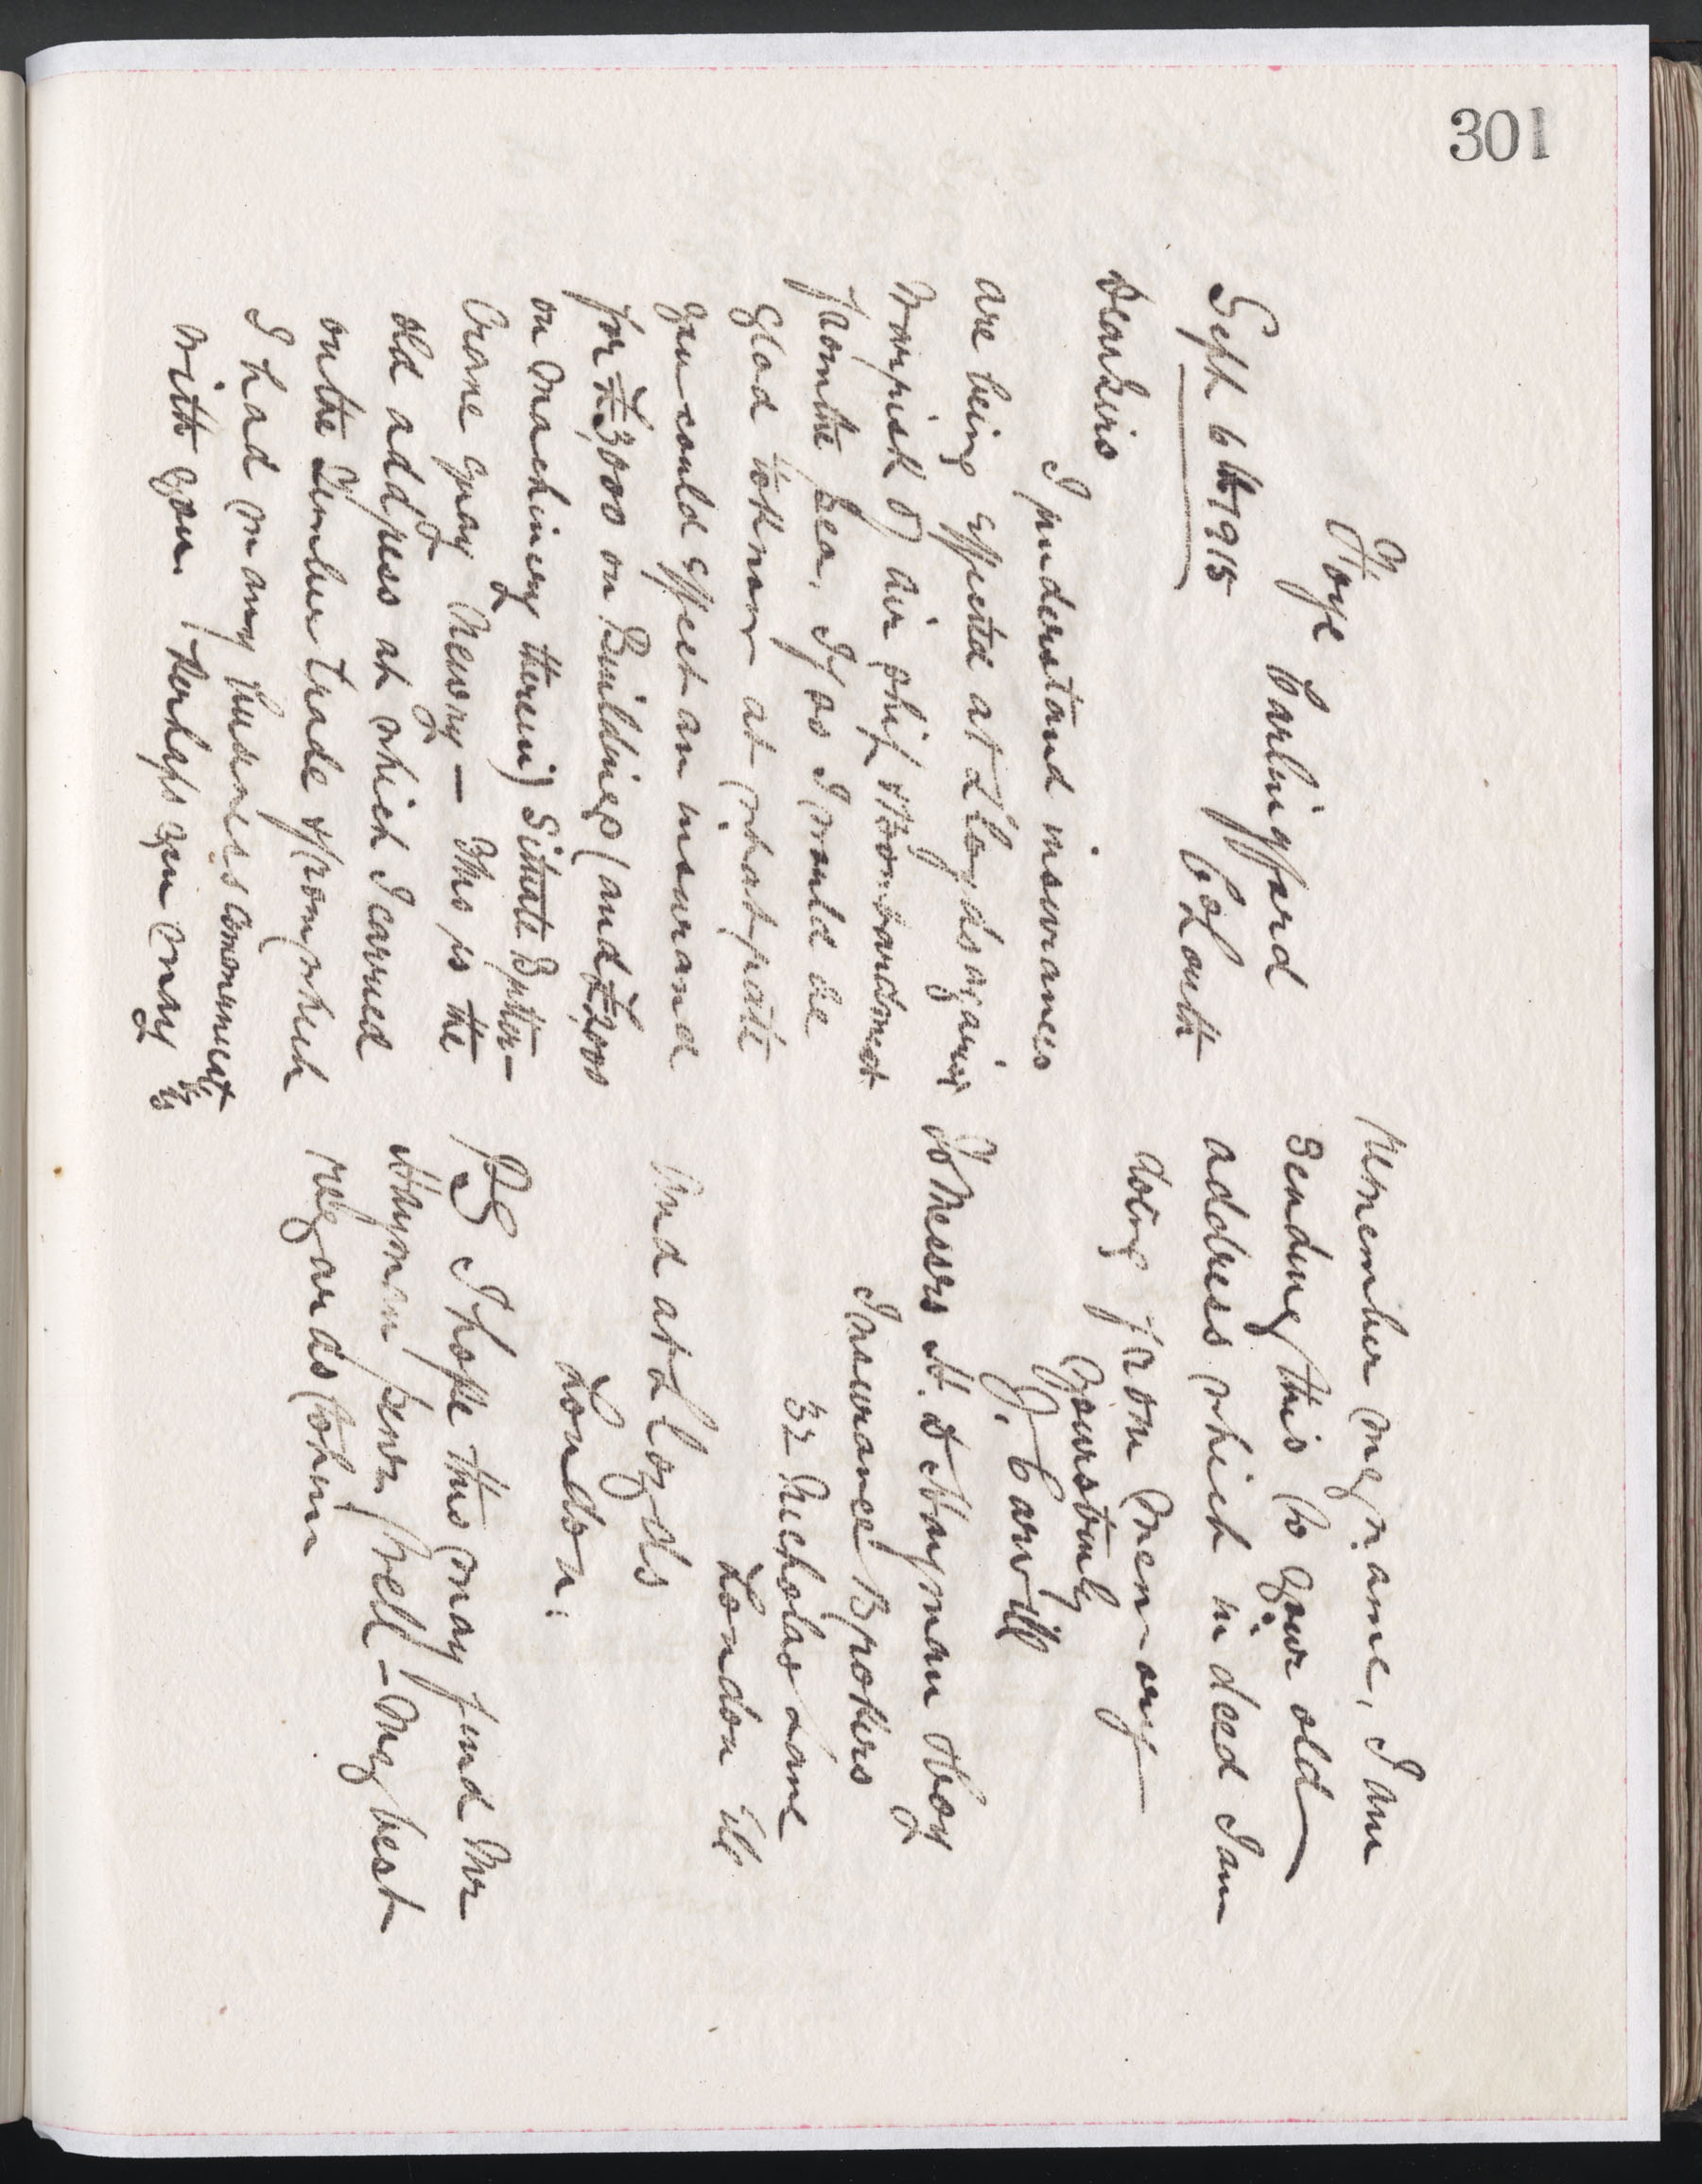 301
Foye Carlingford
Co Louth
Sept 6th 1915
Dear Sirs
I understand insurances
are being effected at Lloyds against
War risk of air ship & Bombardment
from the sea, If so I would be
glad to know at what rate
you could effect an insurance
for £3,000 on Buildings (and £2,000
on Machinery therein) Situate Butter-
Crane Quay Newry - This is the
old address at which I carried
on the Timber trade & from which
I had many business communicat
with you. Perhaps you may to
remember my name, I am
sending this to your old
address which indeed I am
doing from memory
Yours truly
J. Carvill
To Messrs H. & Hayman & boy
Insurance Brokers
32 Nicholas Lane
London EC
And at Lloyds
London.
PS I hope this may find Mr
Hayman Senr well - My best
regards to him